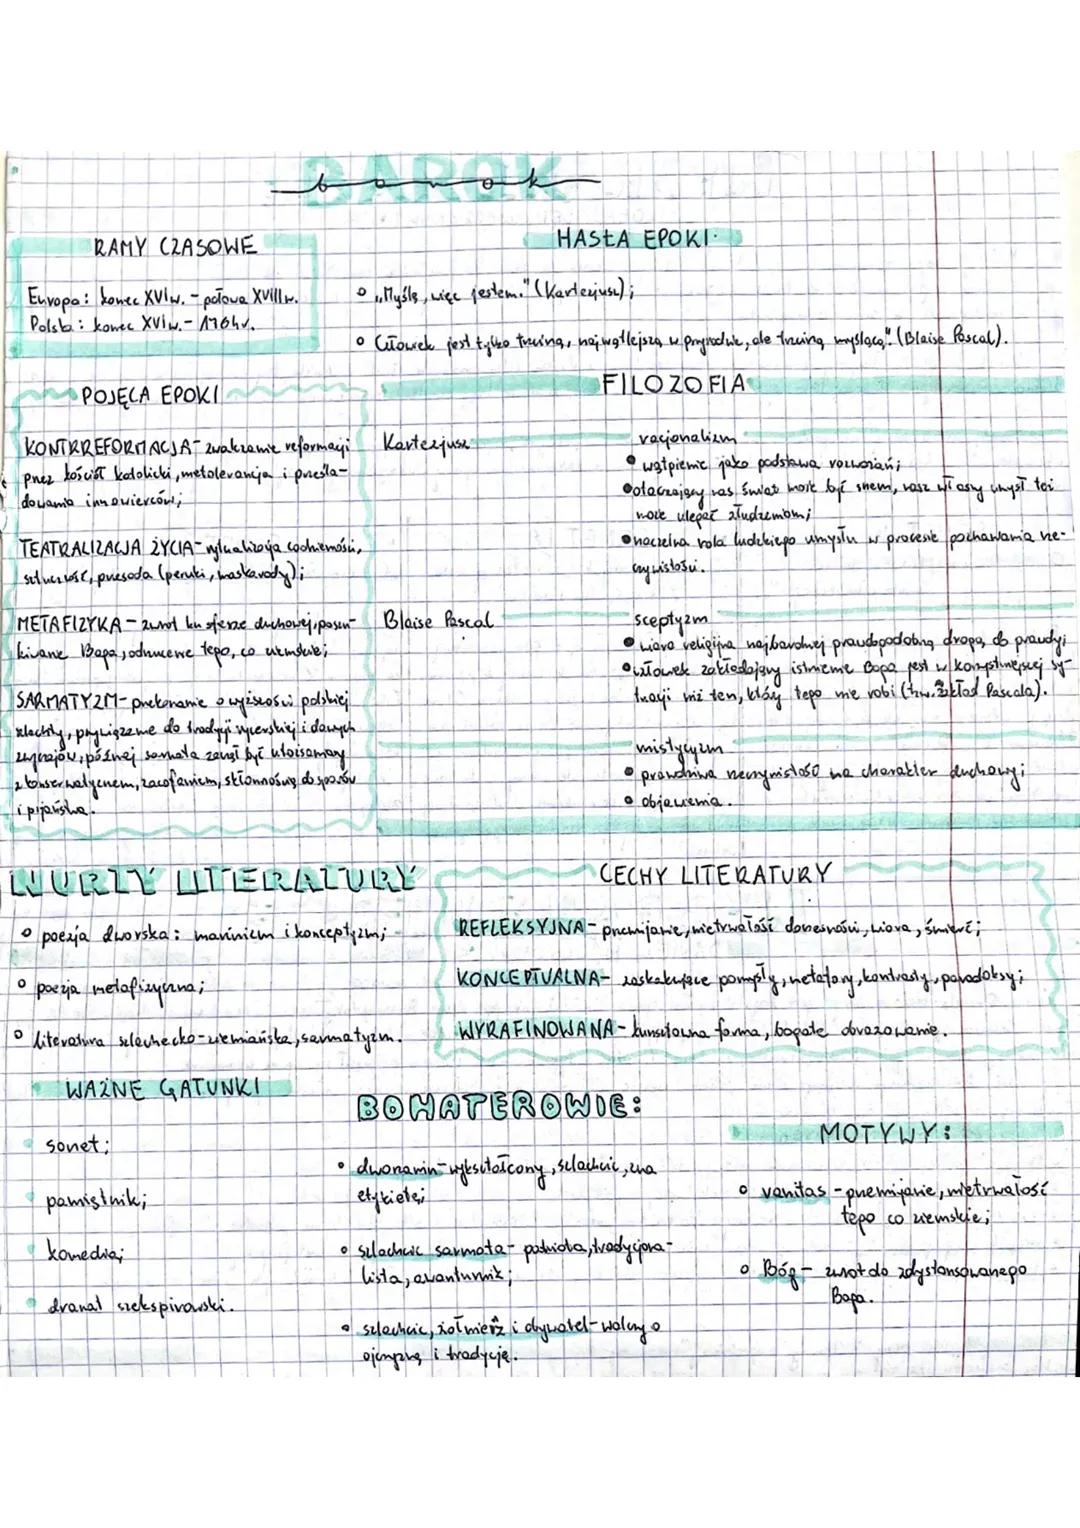 BAROK
barok
RAMY CZASOWE
Europa: koniec XVI w. - połowa XVIII w.
Polska: koniec XVI w. - 1764 r.
HASŁA EPOKI:
„Myślę, więc jestem." (Kartezjusz);
Człowiek jest tylko trzciną, najwątlejszą w przyrodzie, ale trzciną myślącą." (Blaise Pascal).
POJĘCA EPOKI
KONTRREFORMACJA - zwalczanie reformacji
przez kościół katolicki, nietolerancja i prześla-
dowania innowierców;
TEATRALIZACJA ŻYCIA - rytualizacja codzienności,
sztuczność, przesada (peruki, maskarady);
METAFIZYKA - zwrot ku sferze duchowej, poszu-
kiwanie Boga, odrzucenie tego, co ziemskie;
SARMATYZM - przekonanie o wyższości polskiej
szlachty, przywiązanie do tradycji rycerskiej i dawnych
zwyczajów, później sarmata zaczął być utożsamiany
z konserwatyzmem, zacofaniem, skłonnością do sporów
i pijaństwa.
FILOZOFIA
Kartezjusz
racjonalizm
wątpienie jako podstawa rozważań;
otaczający nas świat może być snem, nasz własny umysł też
może ulegać złudzeniom;
naczelna rola ludzkiego umysłu w procesie poznawania rze-
czywistości.
Blaise Pascal
sceptyzm
wiara religijna najbardziej prawdopodobną drogą do prawdy;
człowiek zakładający istnienie Boga jest w korzystniejszej sy-
tuacji niż ten, który tego nie robi (tzw. Zakład Pascala).
mistycyzm
prawdziwa rzeczywistość ma charakter duchowy;
objawienia.
NURTY LITERATURY
poezja dworska: marinizm i konceptyzm;
poezja metafizyczna;
literatura szlachecko-ziemiańska, sarmatyzm.
CECHY LITERATURY
REFLEKSYJNA - przemijanie, nietrwałość doczesności, wiara, śmierć;
KONCEPTUALNA - zaskakujące pomysły, metafory, kontrasty, paradoksy;
WYRAFINOWANA - kunsztowna forma, bogate obrazowanie.
WAŻNE GATUNKI
sonet;
pamiętnik;
komedia;
dramat szekspirowski.
BOHATEROWIE:
dworzanin - wykształcony, szlachcic, zna
etykietę;
szlachcic sarmata - patriota, tradycjona-
lista, awanturnik;
szlachcic, żołnierz i obywatel - walczy o
ojczyznę i tradycję.
MOTYWY:
vanitas - przemijanie, nietrwałość
tego co ziemskie;
Bóg - zwrot do zdystansowanego
Boga.